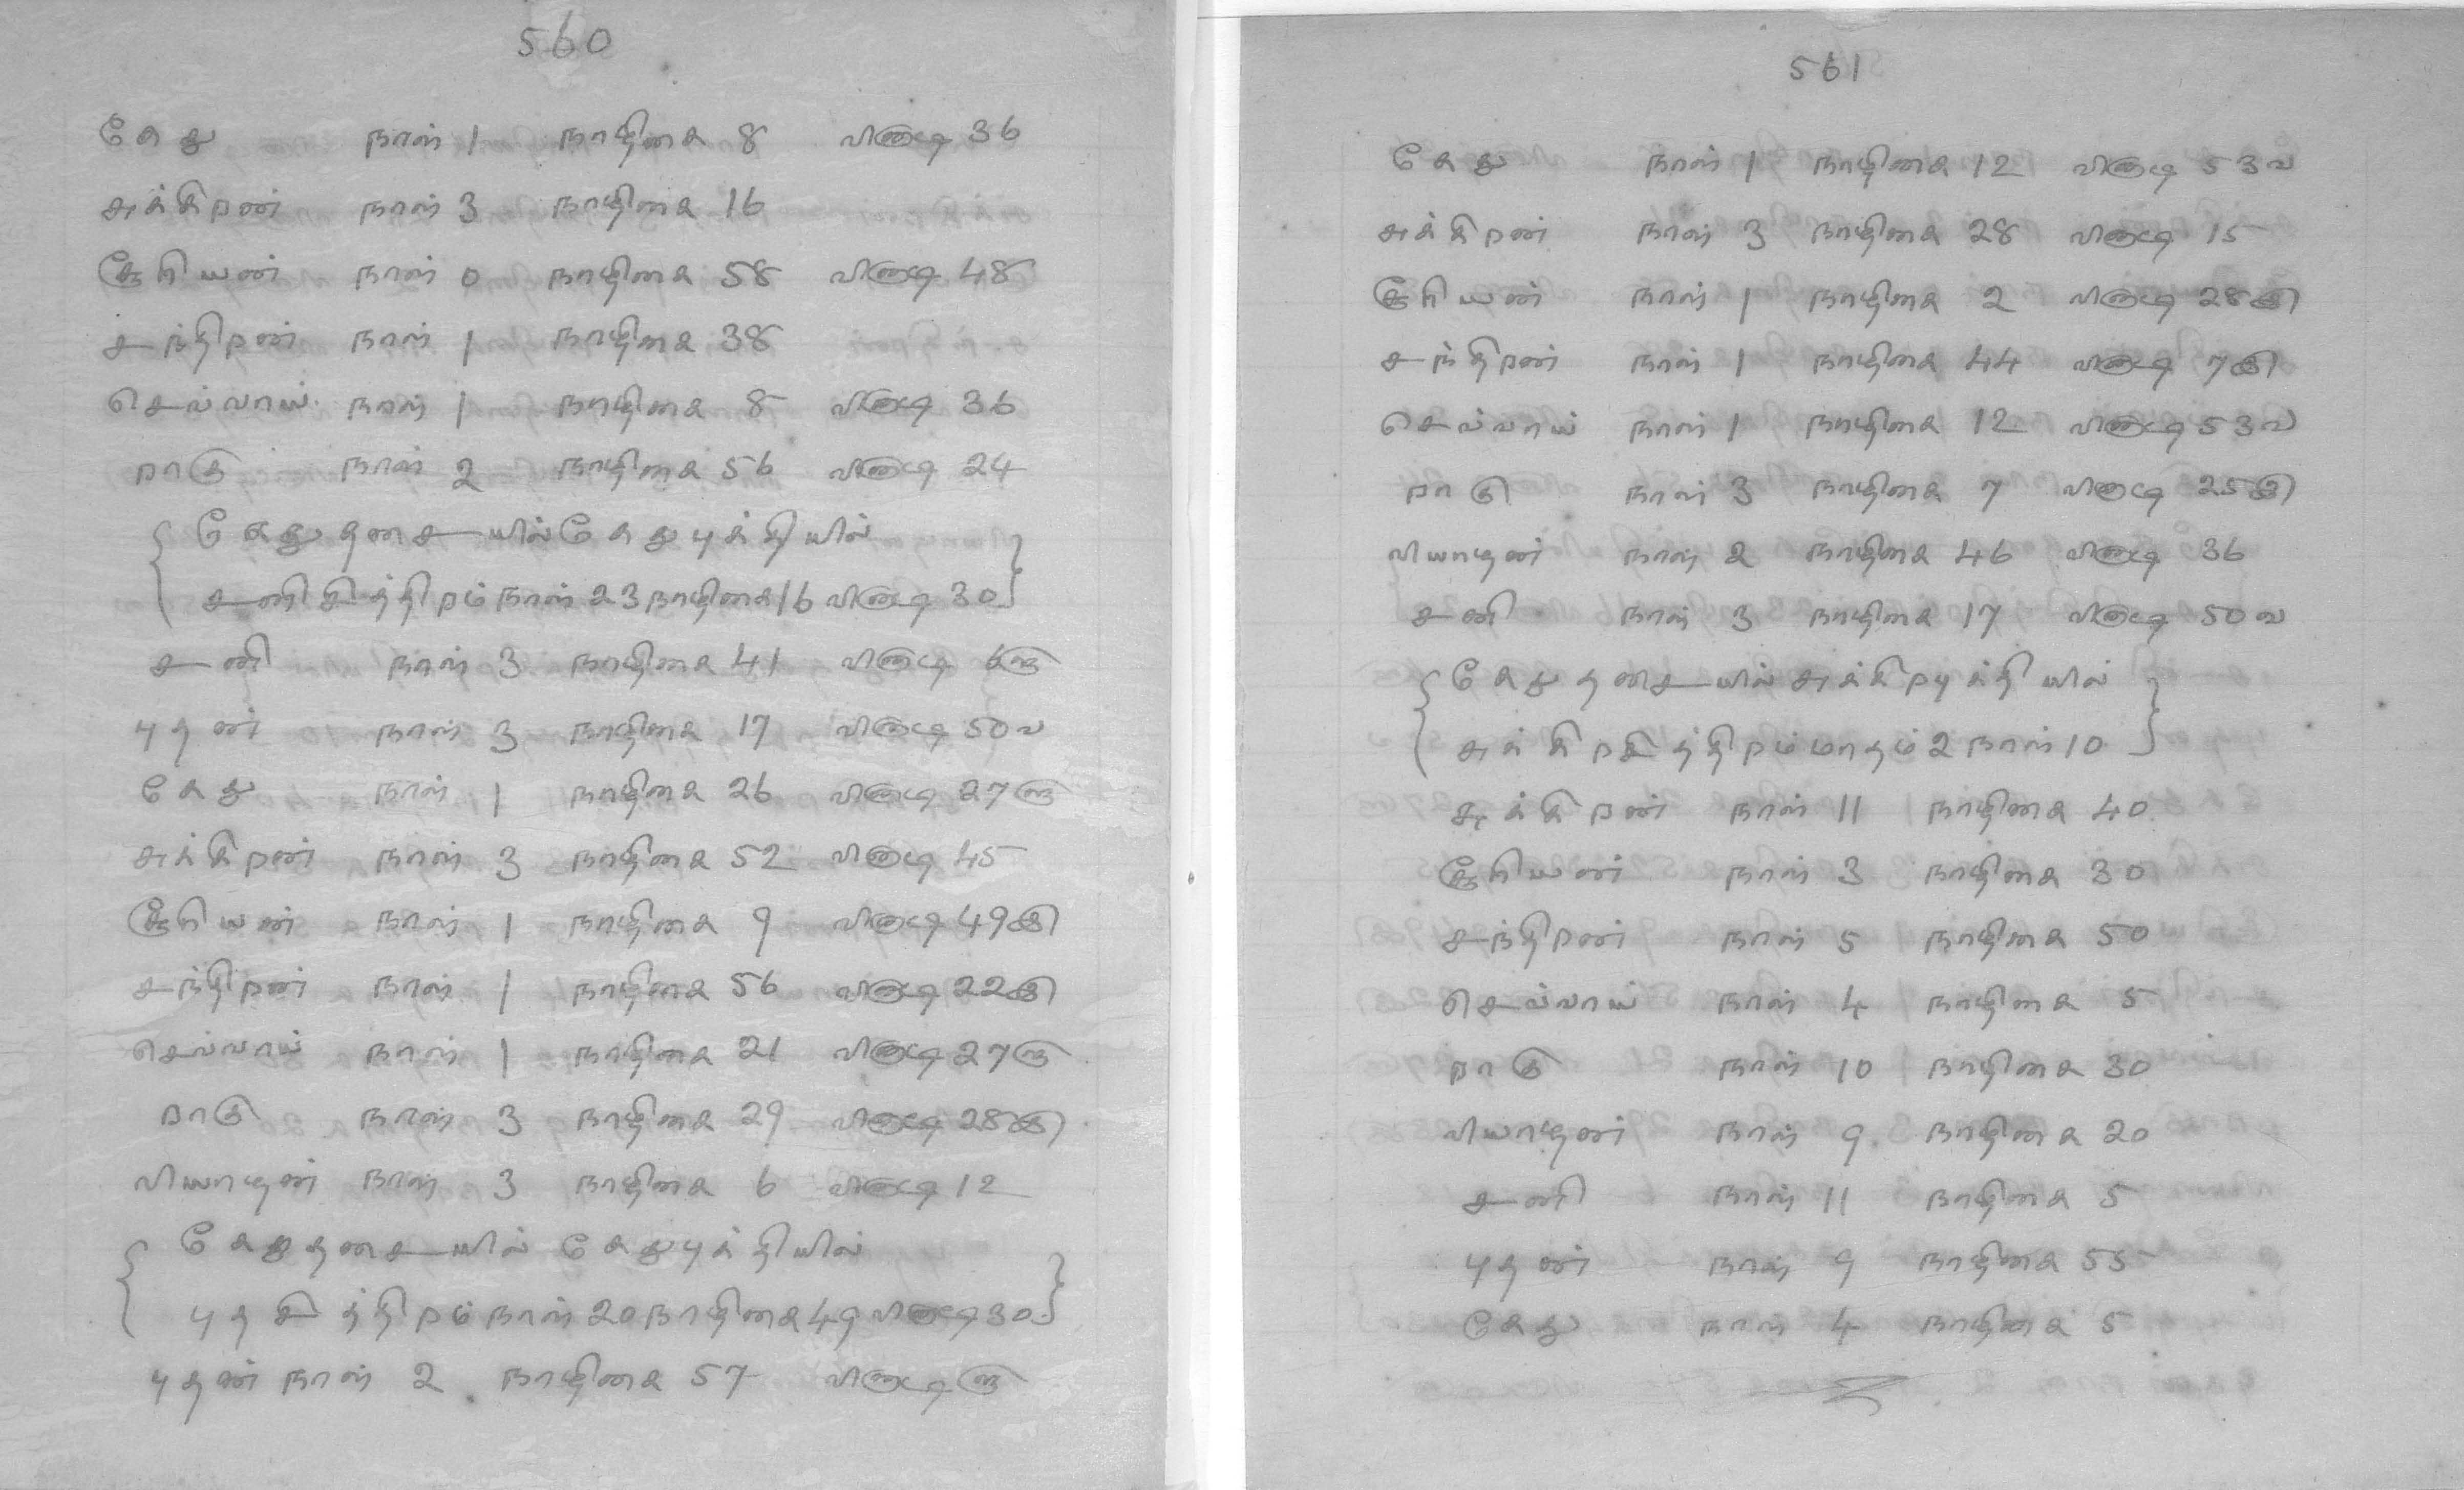 560
கேது நாள் 1 நாழிகை 8 வினாடி 36
சுக்கிறன் நாள் 3 நாழிகை 16
சூரியன் நாள் 0 நாழிகை 58 வினாடி 48
சந்திறன் நாள் 1 நாழிகை 38
செவ்வாய் நாள் 1 நாழிகை 8 வினாடி 36
றாகு நாள் 2 நாழிகை 56 வினாடி 24
கேதுதசையில் கேதுபுக்தியில்
சனிசித்திறம் நாள் 23 நாழிகை 16 வினாடி 30
சனி நாள் 3 நாழிகை 41 வினாடி 6ஞ
புதன் நாள் 3 நாழிகை 17 வினாடி 50வ
கேது நாள் 1 நாழிகை 26 வினாடி 27ஞ
சுக்கிறன் நாள் 3 நாழிகை 52 வினாடி 45
சூரியன் நாள் 1 நாழிகை 9 வினாடி 49இ
சந்திறன் நாள் 1 நாழிகை 56 வினாடி 22இ
செவ்வாய் நாள் 1 நாழிகை 21 வினாடி 27ஞ
றாகு நாள் 3 நாழிகை 29 வினாடி 28இ
வியாழன் நாள் 3 நாழிகை 6 வினாடி 12
கேதுதசையில் கேதுபுக்தியில்
புதசித்திறம் நாள் 20 நாழிகை 49 வினாடி 30
புதன் நாள் 2 நாழிகை 57 வினாடி ஞ
561
கேது நாள் 1 நாழிகை 12 வினாடி 53வ
சுக்கிறன் நாள் 3 நாழிகை 28 வினாடி 15
சூரியன் நாள் 1 நாழிகை 2 வினாடி 28இ
சந்திறன் நாள் 1 நாழிகை 44 வினாடி 7இ
செவ்வாய் நாள் 1 நாழிகை 12 வினாடி 53வ
றாகு நாள் 3 நாழிகை 7 வினாடி 25இ
வியாழன் நாள் 2 நாழிகை 46 வினாடி 36
சனி நாள் 3 நாழிகை 17 வினாடி 50வ
கேதுதசையில் சுக்கிறபுக்தியில்
சுக்கிறசித்திறம் மாதம் 2 நாள் 10
சுக்கிறன் நாள் 11 நாழிகை 40
சூரியன் நாள் 3 நாழிகை 30
சந்திறன் நாள் 5 நாழிகை 50
செவ்வாய் நாள் 4 நாழிகை 5
றாகு நாள் 10 நாழிகை 30
வியாழன் நாள் 9 நாழிகை 20
சனி நாள் 11 நாழிகை 5
புதன் நாள் 9 நாழிகை 55
கேது நாள் 4 நாழிகை 5